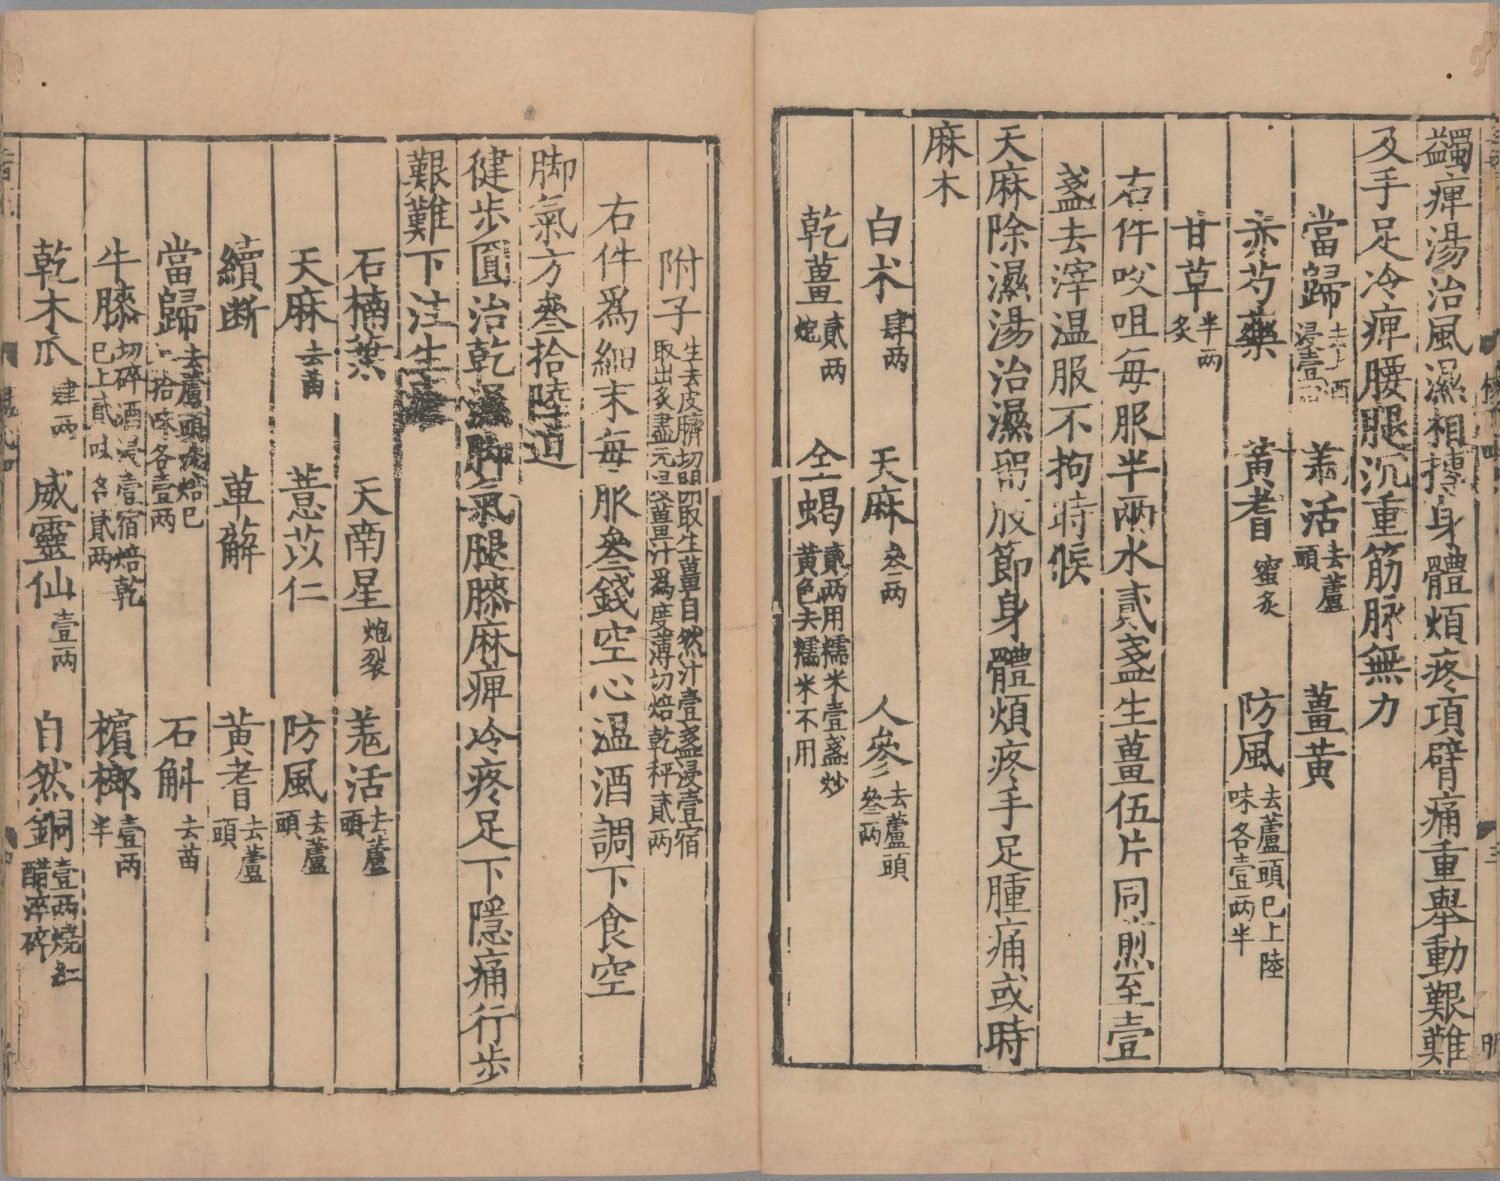 蠲痺湯治風濕相搏身體煩疼項臂痛重舉動艱難
及手足冷痺腰腿沉重筋脉無力
當歸去土酒浸壹宿 羗活去蘆頭 薑黃
赤芍藥 黃耆蜜炙 防風去蘆頭已上陸味各壹两半
甘草半两炙
右件㕮咀每服半兩水貳盞生薑伍片同煎至壹
盞去滓温服不拘時候
天麻除濕湯治濕留肢節身體煩疼手足腫痛或時
麻木
白术肆两 天麻叄两 人參去蘆頭叄两
乾薑貳两炮 全蝎貳两用糯米壹盞炒黃色去糯米不用
附子生去皮臍切開取生薑自然汁壹盞浸壹宿取出炙盡元浸薑汁爲度薄切焙乾秤貳两
右件爲細末每服叄錢空心温酒調下食空
脚氣方叄拾陸道
健步圓治乾濕脚氣腿膝麻痺冷疼足下隱痛行步
艱難下注生瘡
石楠葉 天南星炮裂 羗活去蘆頭
天麻去苗 薏苡仁 防風去蘆頭
續断 萆薢 黃耆去蘆頭
當歸去蘆頭洗焙已上拾味各壹两 石斛去苗
牛膝切碎酒浸壹宿焙乾已上貳味各貳两 檳榔壹两半
乾木瓜肆两 威靈仙壹两 自然銅壹两燒紅醋淬碎